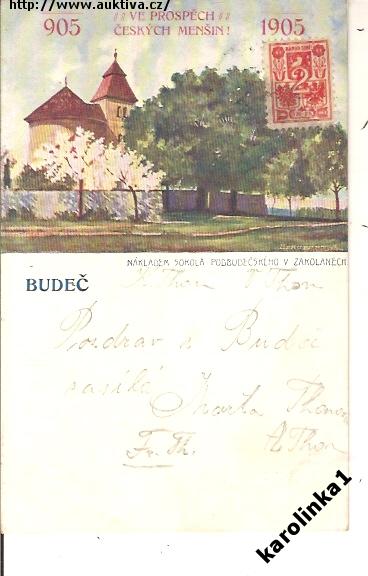 Zdroj: https://www.auktiva.cz/
905 VE PROSPĚCH 1905
ČESKÝCH MENŠIN!
2
NÁKLADEM SOKOLA PODBUDEČSKÉHO V ZÁKOLANECH
BUDEČ
Thon V Thon
Pozdrav z Budče
zasílá
Marta Thonova
Fr. Th. A Thon
karolinka1